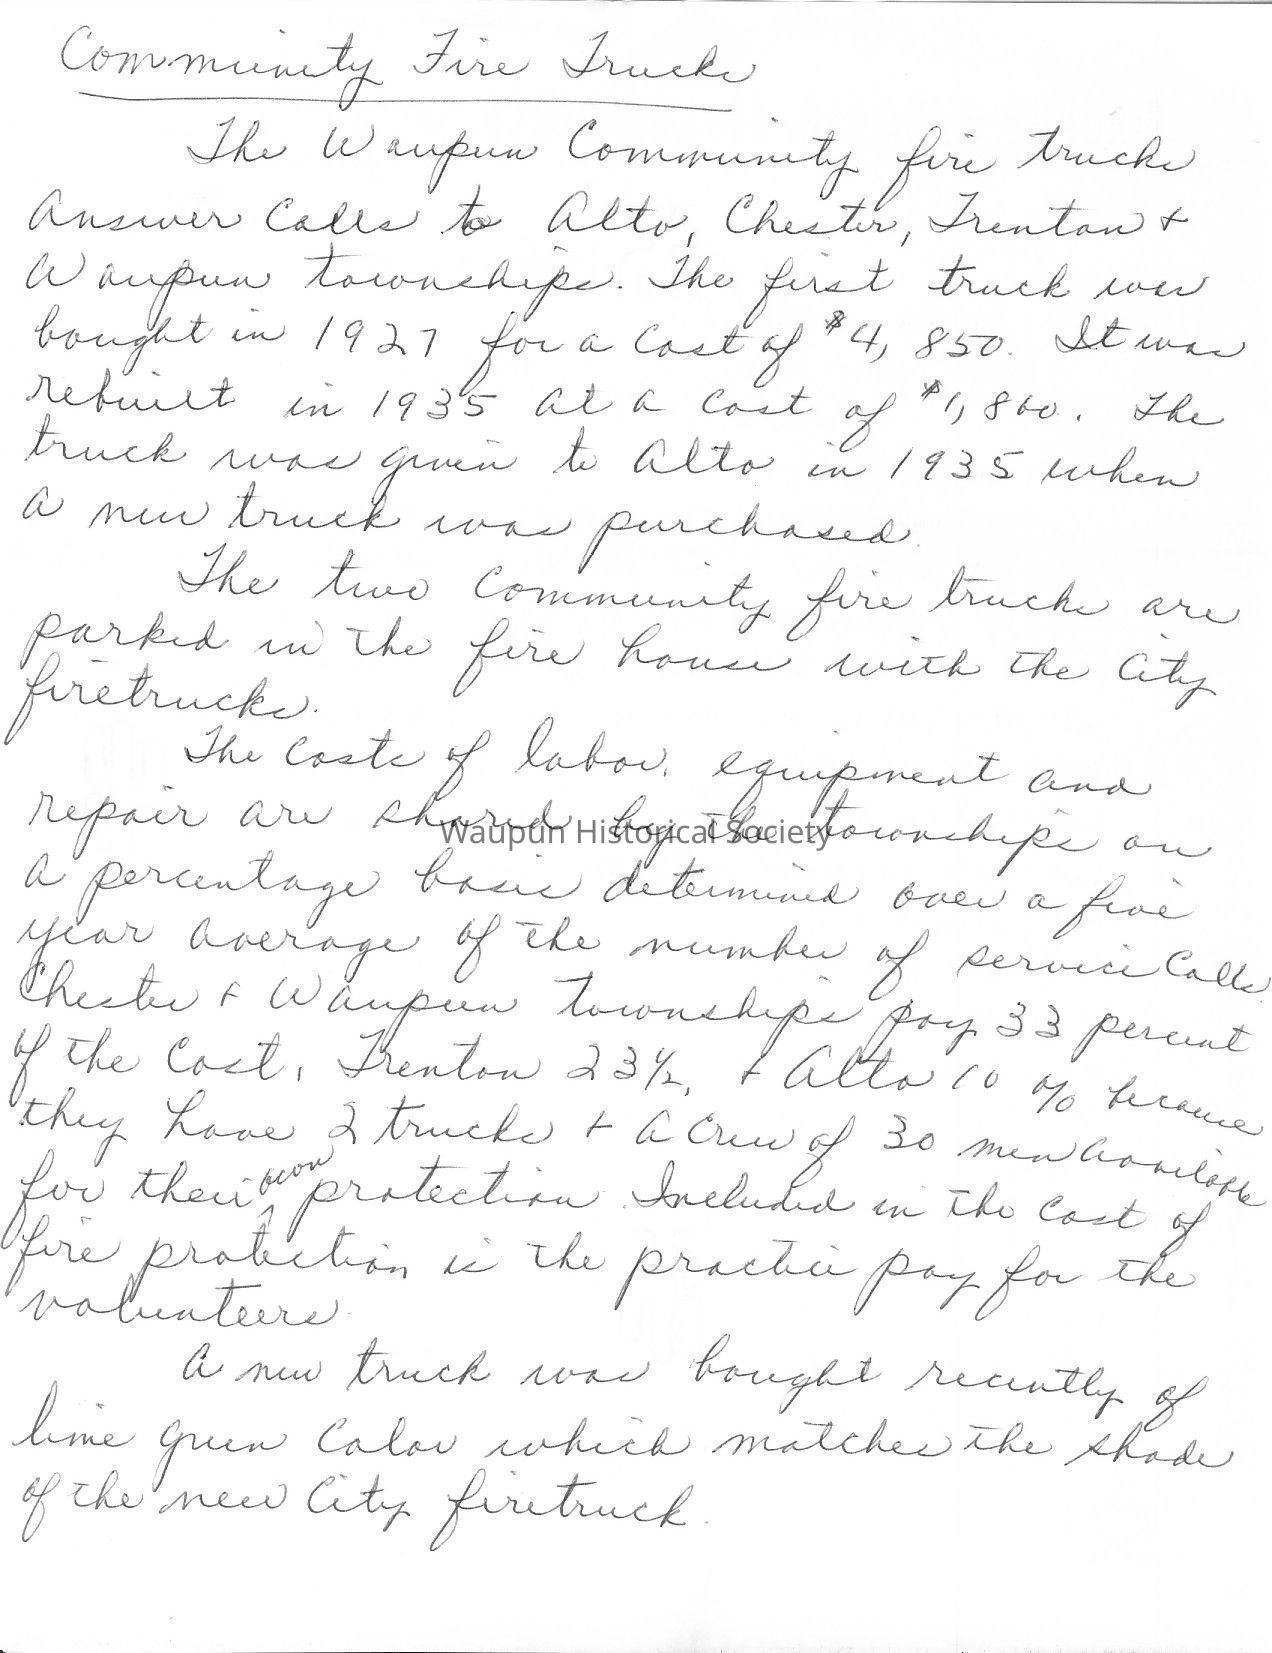 Community Fire Trucks
The Waupun Community fire trucks
answer calls to Alto, Chester, Trenton +
Waupun townships. The first truck was
bought in 1927 for a cost of $4,850. It was
rebuilt in 1935 at a cost of $1,800. The
truck was given to Alto in 1935 when
a new truck was purchased.
The two Community fire trucks are
parked in the fire house with the City
firetrucks.
The costs of labor, equipment and
repair are shared by the townships on
Waupun Historical Society
a percentage basis determined over a five
year average of the number of service calls.
Chester + Waupun townships pay 33 percent
of the cost, Trenton 23½, + Alto 10 % because
they have 2 trucks + a crew of 30 men available
for their own protection. Included in the cost of
fire protection is the practice pay for the
volunteers.
A new truck was bought recently of
lime green color which matches the shade
of the new City firetruck.